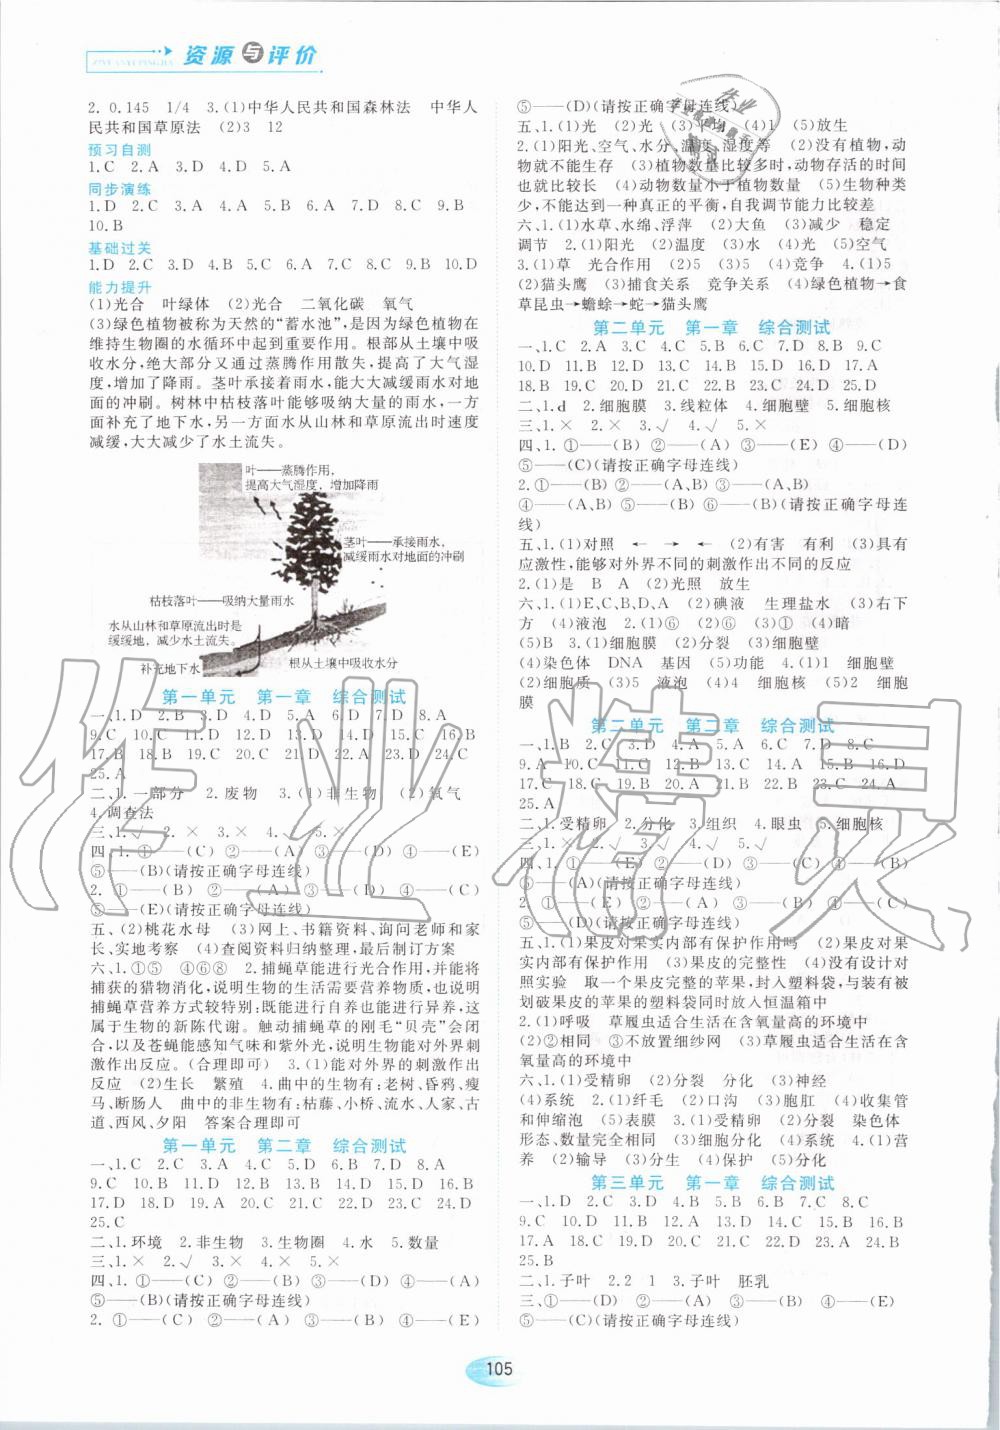 资源与评价
ZIYUANYUPINGJIA
2. 0.145  1/4  3.(1)中华人民共和国森林法  中华人
民共和国草原法  (2)3  12
预习自测
1.C  2.A  3.D  4.D  5.C
同步演练
1.D  2.C  3.A  4.A  5.A  6.D  7.C  8.C  9.B
10.B
基础过关
1.D  2.C  3.D  4.C  5.C  6.A  7.C  8.C  9.B  10.D
能力提升
(1)光合  叶绿体  (2)光合  二氧化碳  氧气
(3)绿色植物被称为天然的“蓄水池”,是因为绿色植物在
维持生物圈的水循环中起到重要作用。根部从土壤中吸
收水分,绝大部分又通过蒸腾作用散失,提高了大气湿
度,增加了降雨。茎叶承接着雨水,能大大减缓雨水对地
面的冲刷。树林中枯枝落叶能够吸纳大量的雨水,一方
面补充了地下水,另一方面水从山林和草原流出时速度
减缓,大大减少了水土流失。
叶——蒸腾作用,
提高大气湿度,增加降雨
茎叶——承接雨水,
减缓雨水对地面的冲刷
枯枝落叶——吸纳大量雨水
水从山林和草原流出时是
缓缓地,减少水土流失。
补充地下水
根从土壤中吸收水分
第一单元  第一章  综合测试
一、1.D  2.B  3.D  4.D  5.A  6.D  7.D  8.A
9.C  10.C  11.D  12.D  13.C  14.C  15.C  16.B
17.B  18.B  19.C  20.C  21.D  22.A  23.D  24.C
25.A
二、1.一部分  2.废物  3.(1)非生物  (2)氧气
4.调查法
三、1.√  2.×  3.×  4.×  5.×
四、1.①——(C)  ②——(A)  ③——(D)  ④——(E)
⑤——(B)(请按正确字母连线)
⑤——(E)(请按正确字母连线)
五、(2)桃花水母  (3)网上、书籍资料、询问老师和家
长、实地考察  (4)查阅资料归纳整理,最后制订方案
六、1.①⑤  ④⑥⑧  2.捕蝇草能进行光合作用,并能
将捕获的猎物消化,说明生物的生活需要营养物质,也说明
捕蝇草营养方式较特别:既能进行自养也能进行异养,这
属于生物的新陈代谢。触动捕蝇草的刚毛“贝壳”会闭
合,以及苍蝇能感知气味和紫外光,说明生物能对外界刺
激作出反应。(合理即可)  3.(1)能对外界的刺激作出反应
(2)生长  繁殖  4.曲中的生物有:老树、昏鸦、瘦
马、断肠人  曲中的非生物有:枯藤、小桥、流水、人家、古
道、西风、夕阳  答案合理即可
第一单元  第二章  综合测试
一、1.C  2.C  3.A  4.C  5.A  6.D  7.D  8.A
9.C  10.C  11.D  12.B  13.C  14.C  15.D  16.B
17.D  18.D  19.D  20.C  21.D  22.D  23.D  24.D
25.C
二、1.环境  2.非生物  3.生物圈  4.水  5.数量
三、1.×  2.√  3.×  4.×  5.×
四、1.①——(C)  ②——(E)  ③——(D)  ④——(A)
⑤——(B)(请按正确字母连线)
2.①——(C)  ②——(A)  ③——(B)  ④——(E)
⑤——(D)(请按正确字母连线)
五、1.(1)光  (2)光  (3)平均  (4)1  (5)放生
2.(1)阳光、空气、水分、温度、湿度等  (2)没有植物,动
物就不能生存  (3)植物数量比较多时,动物存活的时间
也就比较长  (4)动物数量小于植物数量  (5)生物种类
少,不能达到一种真正的平衡,自我调节能力比较差
六、1.(1)水草、水绵、浮萍  (2)大鱼  (3)减少  稳定
调节  2.(1)阳光  (2)温度  (3)水  (4)光  (5)空气
3.(1)草  光合作用  (2)5  (3)5  (4)竞争  4.(1)5
(2)猫头鹰  (3)捕食关系  竞争关系  (4)绿色植物→食
草昆虫→蟾蜍→蛇→猫头鹰
第二单元  第一章  综合测试
一、1.C  2.A  3.C  4.C  5.B  6.C  7.D  8.B  9.C
10.D  11.B  12.D  13.C  14.D  15.C  16.A  17.A
18.B  19.C  20.D  21.C  22.B  23.D  24.D  25.C
二、1.d  2.细胞膜  3.线粒体  4.细胞壁  5.细胞核
三、1.×  2.×  3.√  4.√  5.×
四、1.①——(B)  ②——(A)  ③——(E)  ④——(D)
⑤——(C)(请按正确字母连线)
2.①——(B)  ②——(A、B)  ③——(A、B)
④——(A、B)  ⑤——(B)  ⑥——(B)(请按正确字母连
线)
五、1.(1)对照  ←  →  ←  (2)有害  有利  (3)具有
应激性,能够对外界不同的刺激作出不同的反应
2.(1)是  B  A  (2)光照  放生
六、1.(1)E、C、B、D、A  (2)碘液  生理盐水  (3)右下
方  (4)液泡  2.(1)⑥  (2)⑥  (3)①  (4)暗
(5)B  3.(1)细胞膜  (2)分裂  (3)细胞壁
(4)染色体  DNA  基因  (5)功能  4.(1)1  细胞壁
(2)细胞质  (3)5  液泡  (4)4  细胞核  (5)2  细胞
膜
第二单元  第二章  综合测试
一、1.B  2.C  3.D  4.A  5.A  6.B  7.D  8.C
9.A  10.A  11.D  12.D  13.C  14.A  15.B  16.D
17.C  18.C  19.B  20.B  21.D  22.D  23.C  24.B
25.A
二、1.受精卵  2.分化  3.组织  4.眼虫  5.细胞核
三、1.×  2.√  3.√  4.√  5.√
四、1.①——(E)  ②——(D)  ③——(C)  ④——(B)
⑤——(A)(请按正确字母连线)
⑤——(D)(请按正确字母连线)
五、1.(1)果皮对果实内部有保护作用吗  (2)果皮对果
实内部有保护作用  (3)果皮的完整性  (4)没有设计对
照实验  取一个果皮完整的苹果,封入塑料袋,与装有被
划破果皮的苹果的塑料袋同时放入恒温箱中
2.(1)呼吸  草履虫适合生活在含氧量高的环境中
(2)②相同  ③不放置细纱网  (3)草履虫适合生活在含
氧量高的环境中
六、1.(1)受精卵  (2)分裂  分化  (3)神经
(4)系统  2.(1)纤毛  (2)口沟  (3)胞肛  (4)收集管
和伸缩泡  (5)表膜  3.(1)受精卵  (2)分裂  染色体
形态、数量完全相同  (3)细胞分化  (4)系统  4.(1)营
养  (2)输导  (3)分生  (4)保护  (5)分化
第三单元  第一章  综合测试
一、1.D  2.C  3.D  4.B  5.B  6.C  7.C  8.C
9.C  10.D  11.C  12.D  13.C  14.A  15.A  16.B
17.A  18.D  19.B  20.C  21.D  22.A  23.D  24.B
25.B
二、1.子叶  2.2  1  3.子叶  胚乳
三、①——(D)  ②——(A)  ③——(B)  ④——(E)
⑤——(C)(请按正确字母连线)
105
作业精灵